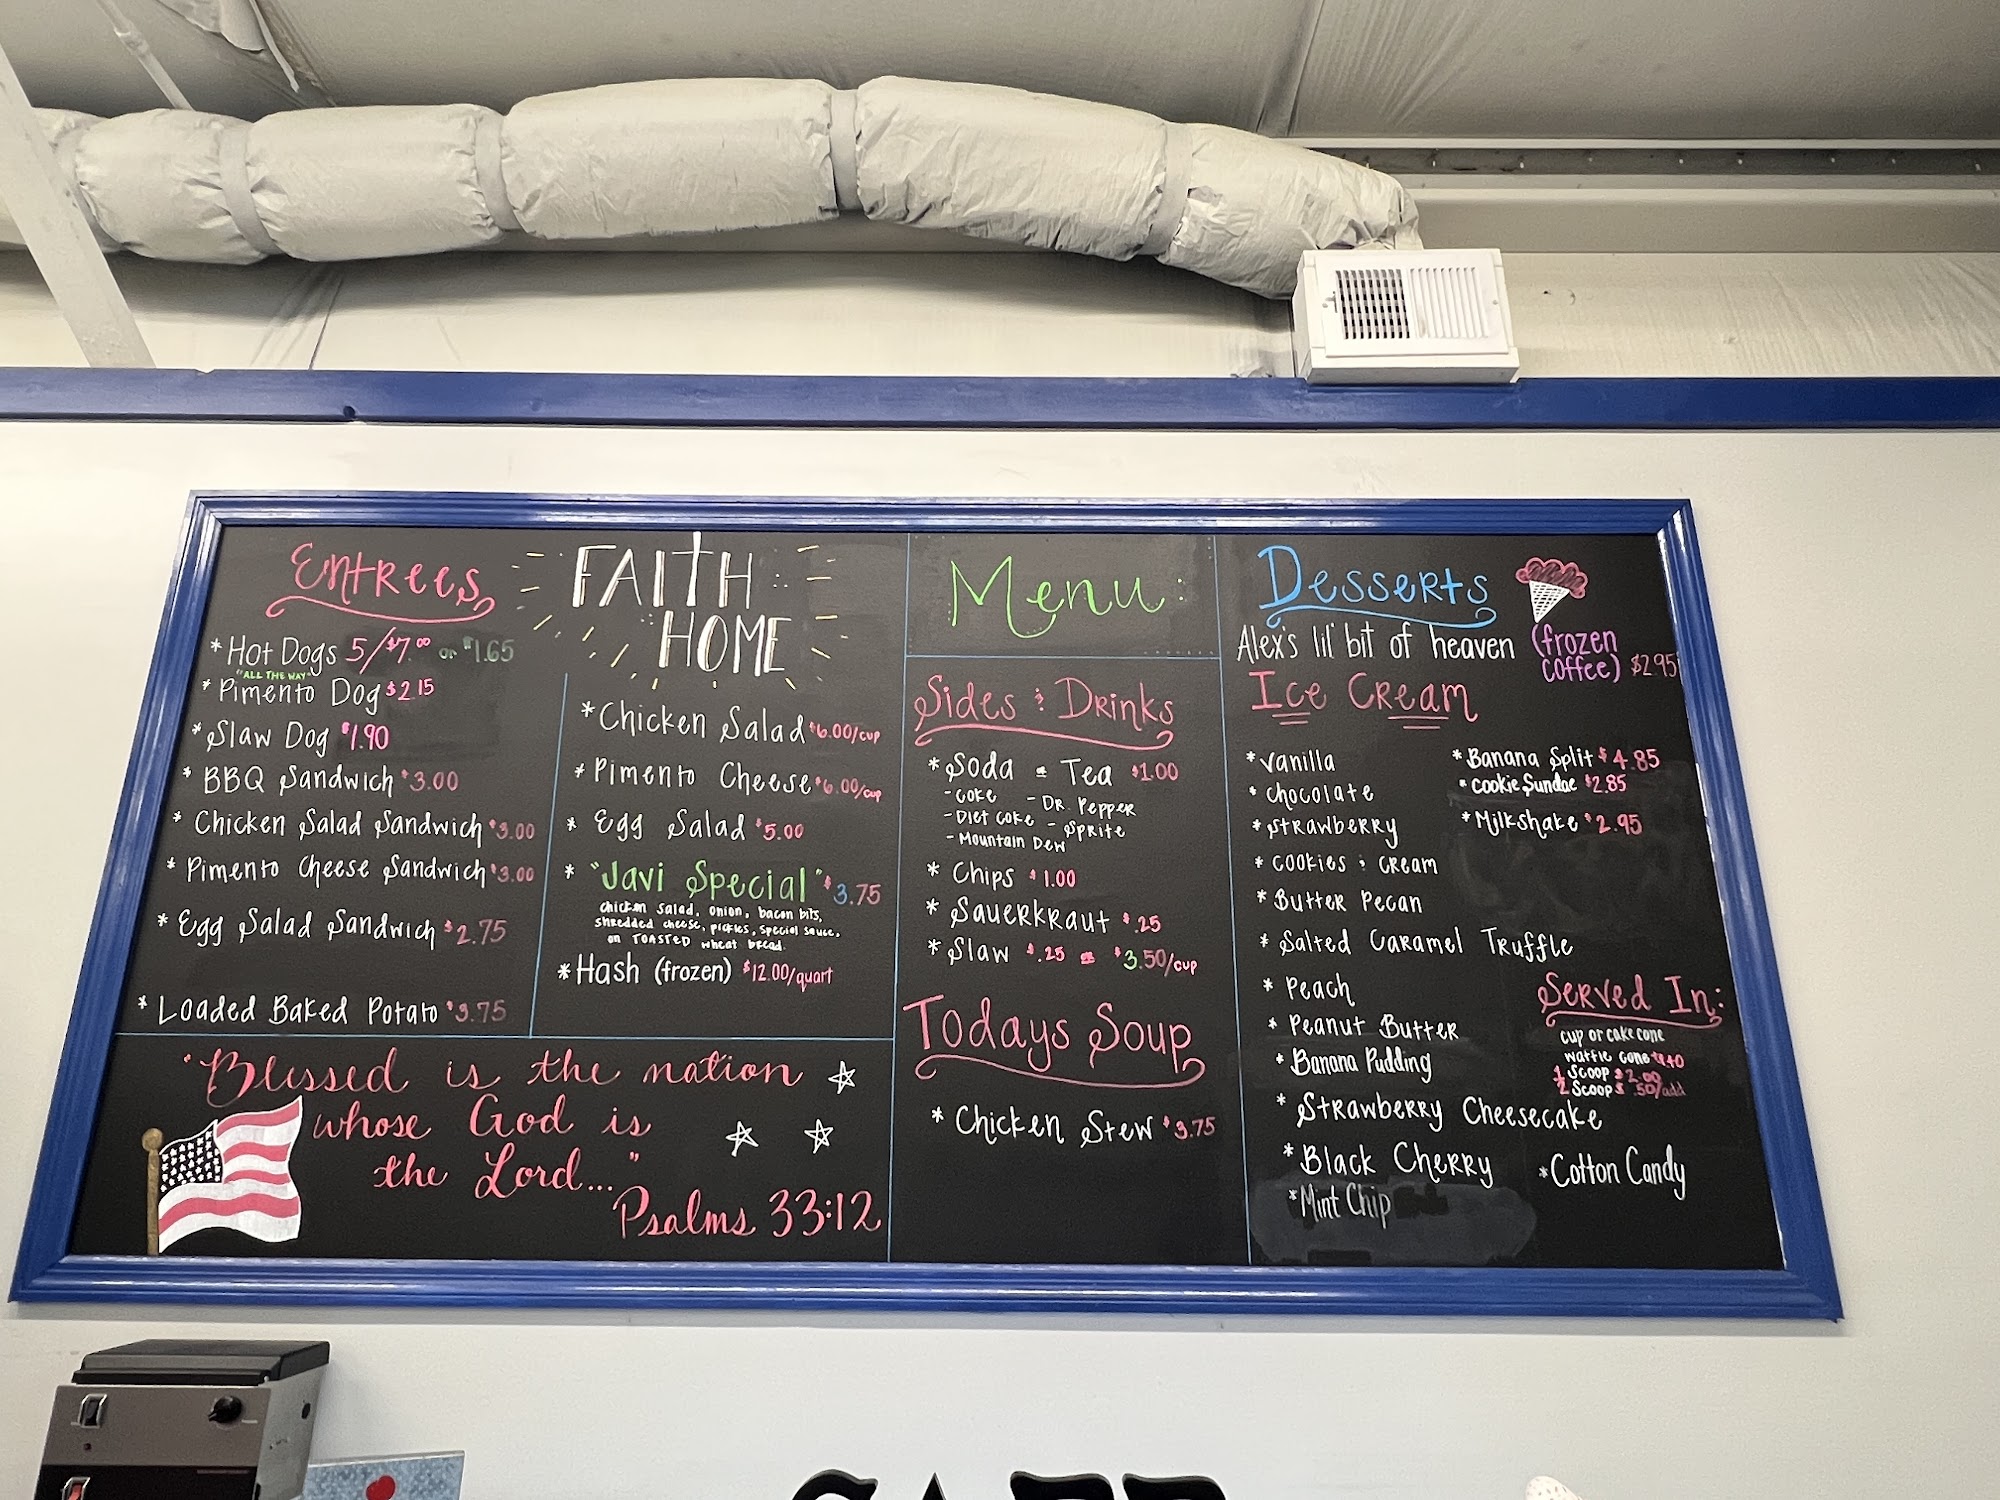 Entrees
*Hot Dogs 5/$7.00 or $1.65
"ALL THE WAY"
*Pimento Dog $2.15
*Slaw Dog $1.90
*BBQ Sandwich $3.00
*Chicken Salad Sandwich $3.00
*Pimento Cheese Sandwich $3.00
*Egg Salad Sandwich $2.75
*Loaded Baked Potato $3.75
FAITH
HOME
*Chicken Salad $6.00/cup
*Pimento Cheese $6.00/cup
*Egg Salad $5.00
*"Javi Special" $3.75
chicken salad, onion, bacon bits,
shredded cheese, pickles, special sauce,
on TOASTED wheat bread.
*Hash (frozen) $12.00/quart
"Blessed is the nation
whose God is
the Lord..."
Psalms 33:12
Menu:
Sides & Drinks
*Soda or Tea $1.00
-Coke -DR. Pepper
-Diet Coke -Sprite
-Mountain Dew
*Chips $1.00
*Sauerkraut $.25
*Slaw $.25 or $3.50/cup
Todays Soup
*Chicken Stew $3.75
Desserts
Alex's lil' bit of heaven (frozen
coffee) $2.95
Ice Cream
*Vanilla
*Chocolate
*Strawberry
*Cookies & Cream
*Butter Pecan
*Salted Caramel Truffle
*Peach
*Peanut Butter
*Banana Pudding
*Strawberry Cheesecake
*Black Cherry
*Mint Chip
*Banana Split $4.85
*Cookie Sundae $2.85
*Milkshake $2.95
Served In:
cup or cake cone
waffle cone
1 Scoop $2.00
2 Scoops .50/add
*Cotton Candy